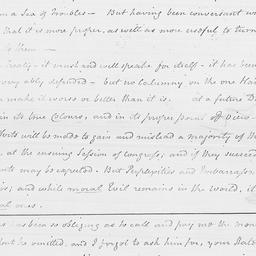 in a Sea of Troubles — But having been conversant w
that it is more proper, as well as more useful to turn
to them —
Treaty — it must and will speak for itself — it has been
very ably defended — but no calumny on the one Han
make it worse or better than it is. at a future D
in its true Colours, and in its proper point of View
Efforts will be made to gain and mislead a majority of th
at the ensuing Session of Congress; and if they succeed
may be expected. But Perplexities and Embarrassm
and while moral Evil remains in the world, it
has been so obliging as to call and pay me the mon
be omitted, and I forgot to ask him for, your